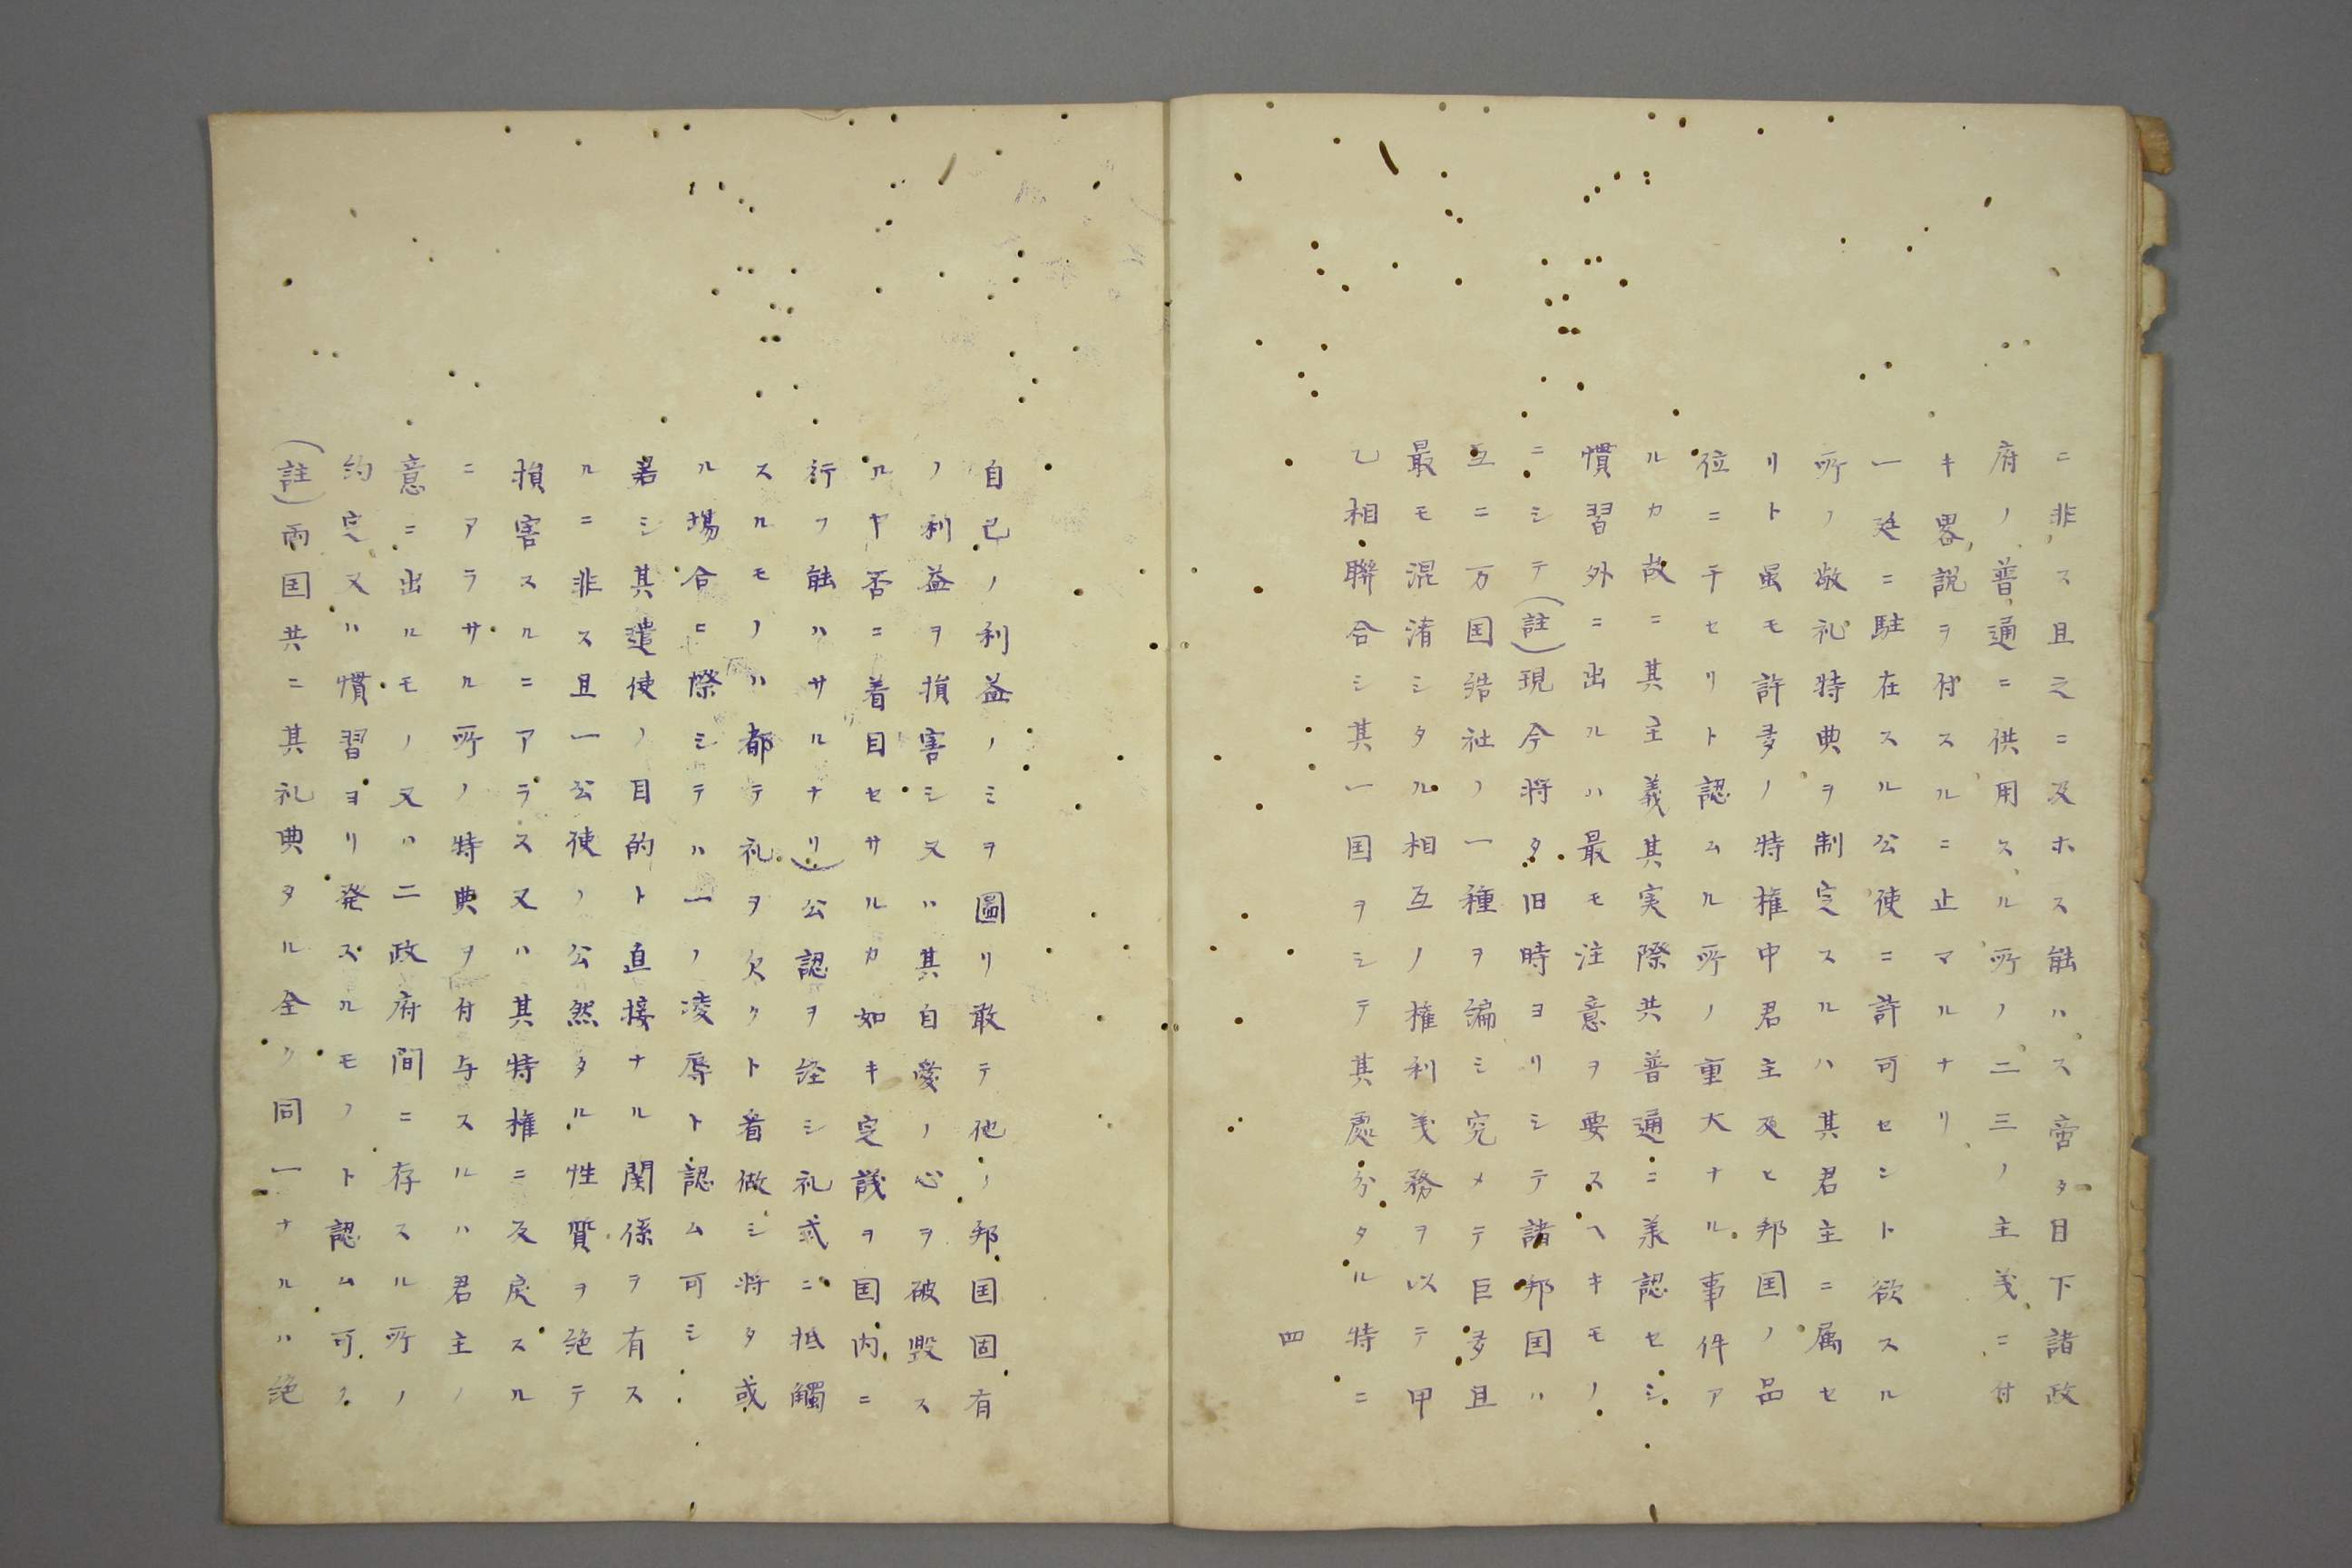 ニ非ス且之ニ及ホス能ハス啻タ目下諸政
府ノ普通ニ供用スル所ノ二三ノ主義ニ付
キ畧説ヲ附スルニ止マルナリ
一廷ニ駐在スル公使ニ許可セント欲スル
所ノ敬礼特典ヲ制定スルハ其君主ニ属セ
リト虽モ許多ノ特権中君主及ヒ邦国ノ品
位ニ干セリト認ムル所ノ重大ナル事件ア
ルカ故ニ其主義其実際共普通ニ承認セシ
慣習外ニ出ルハ最モ注意ヲ要スヘキモノ
ニシテ(註)現今将タ旧時ヨリシテ諸邦国ハ
互ニ万国結社ノ一種ヲ編シ究メテ巨多且
最モ混淆シタル相互ノ権利義務ヲ以テ甲
乙相聯合シ其一国ヲシテ其處分タル特ニ
四
自己ノ利益ノミヲ圖リ敢テ他ノ邦国固有
ノ利益ヲ損害シ又ハ其自愛ノ心ヲ破毀ス
ルヤ否ニ着目セサルカ如キ定議ヲ国内ニ
行フ能ハサルナリ)公認ヲ経シ礼式ニ抵觸
スルモノハ都テ礼ヲ欠クト看做シ将タ或
ル場合ニ際シテハ一ノ凌辱ト認ム可シ
若シ其遣使ノ目的ト直接ナル関係ヲ有ス
ルニ非ス且一公使ノ公然タル性質ヲ絶テ
損害スルニアラス又ハ其特権ニ反戻スル
ニアラサル所ノ特典ヲ付与スルハ君主ノ
意ニ出ルモノ又ハ二政府間ニ存スル所ノ
約定又ハ慣習ヨリ発スルモノト認ム可シ
(註)両国共ニ其礼典タル全ク同一ナルハ絶